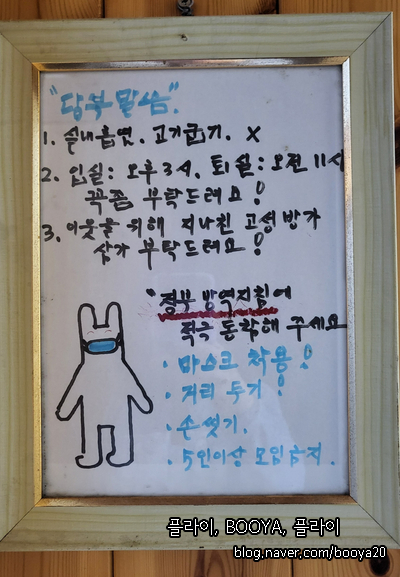 "당부 말씀"
1. 실내흡연. 고기굽기. X
2. 입실: 오후 3시, 퇴실: 오전 11시
꼭쫌 부탁드려요!
3. 이웃을 위해 지나친 고성방가
삼가 부탁드려요!
"정부 방역지침에
적극 동참해 주세요
· 마스크 착용!
· 거리 두기!
· 손 씻기.
· 5인이상 모임금지.
플라이, BOOYA, 플라이
blog.naver.com/booya20